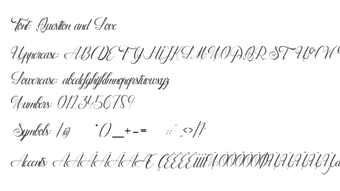 Font: Question and Love
Uppercase: ABCDEFGHIJKLMNOPQRSTUVW
Lowercase: abcdefghijklmnopqrstuvwxyz
Numbers: 0123456789
Symbols: /@ "()__+-= :; <>/?:
Accents: